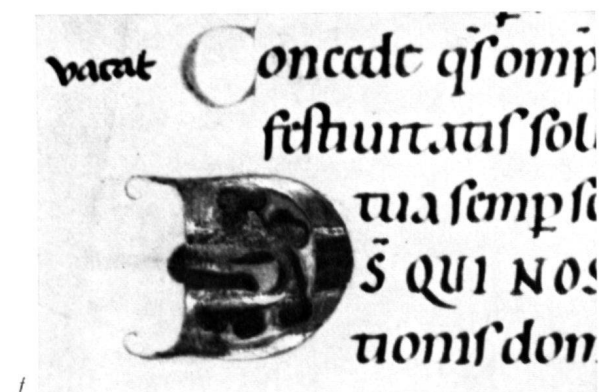 vacat Concede q̄s omp̄
festiuitatis sol
tua semp̱ se
DS̄ QUI NOS
tionis dom
f